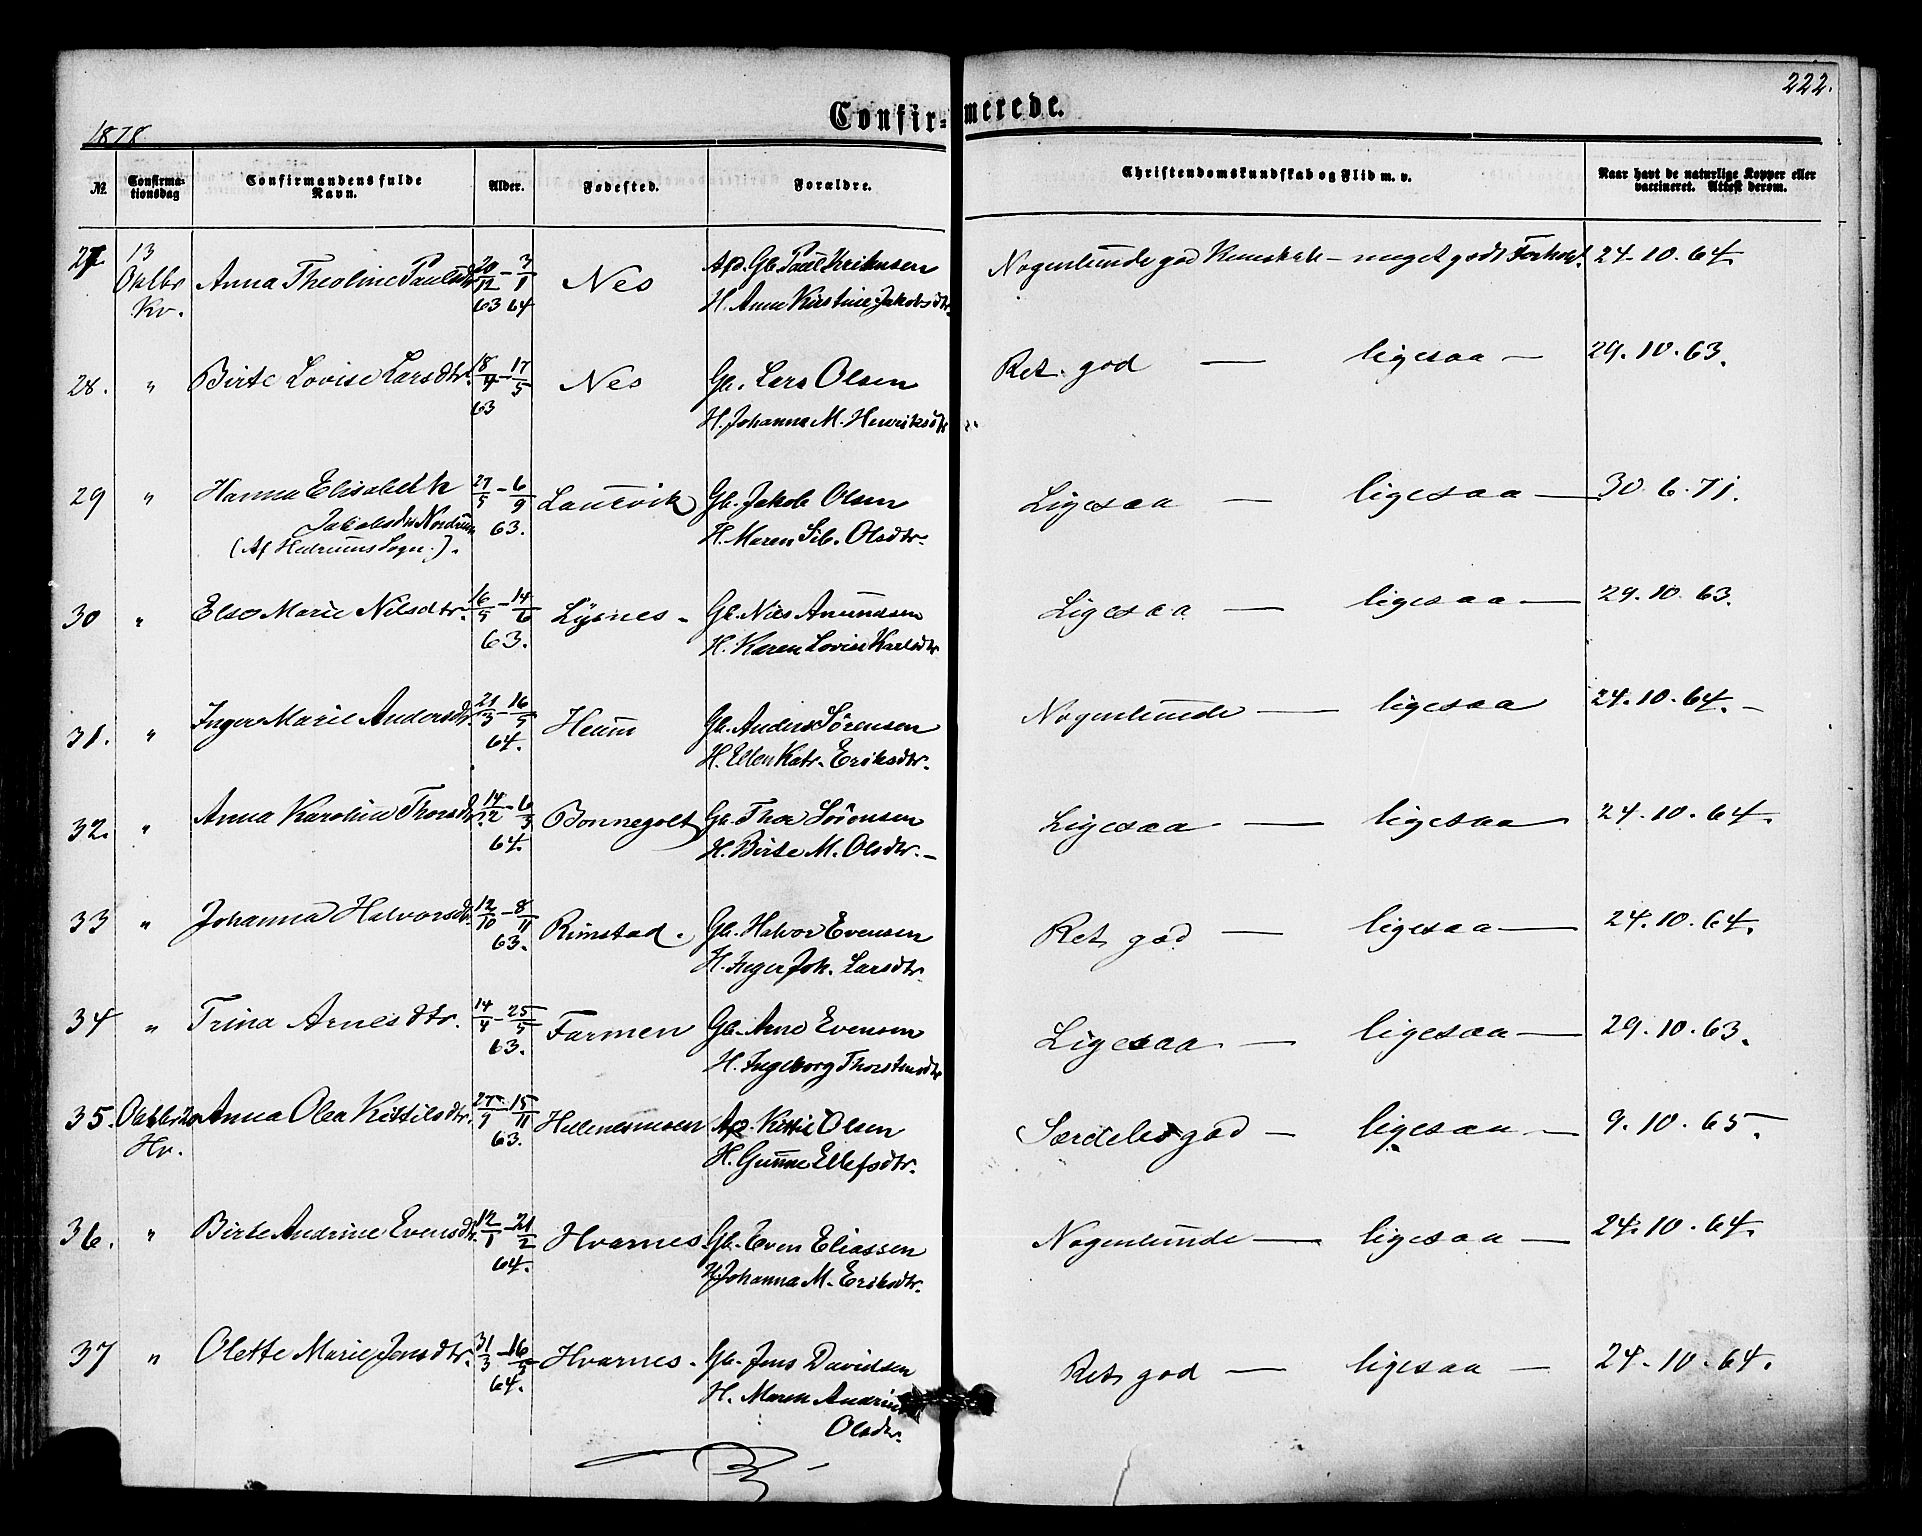 222.
Confirmerede.
1878
No. Confirmationsdag Confirmandens fulde Navn. Alder. Fødested. Forældre. Christendomskundskab og Flid m. v. Naar havt de naturlige Kopper eller vaccineret. Attest derom.
27 13 Octbr Kv. Anna Theoline Paulsdtr 20/12 63 - 3/1 64 Nes Afd. Gb. Paul Eriksen Nogenlunde god Kundskab - meget godt Forhold. 24.10.64.
H. Anne Kirstine Jakobsdtr.
28. " Birte Lovise Larsdtr. 18/4 - 17/5 63 Nes Gb. Lars Olsen Ret god — ligesaa — 29.10.63.
H. Johanna M. Henriksdtr
29 " Hanna Elisabeth 27/5 - 6/9 63. Laurvik Gb. Jakob Olsen Ligesaa — ligesaa — 30.6.71.
Jakobsdtr Nordrum H. Maren Sib. Olsdtr.
(Af Hedrums Sogn.).
30 " Else Marie Nilsdtr. 16/5 - 14/6 63. Lysnes - Gb. Nils Amundsen Ligesaa — ligesaa — 29.10.63.
H. Karen Lovise Karlsdtr
31. " Inger Marie Andersdtr. 21/3 - 16/5 64. Heum Gb. Anders Sørensen Nogenlunde — ligesaa 24.10.64. -
H. Ellen Katr. Eriksdtr.
32. " Anna Karolina Thorsdtr. 14/2 - 6/3 64. Bonnegolt Gb. Thor Sørensen Ligesaa — ligesaa — 24.10.64.
H. Birte M. Olsdtr. -
33 " Johanna Halvorsdtr. 12/10 - 8/11 63. Rimstad. Gb. Halvor Evensen Ret god — ligesaa — 24.10.64.
H. Inger Joh. Larsdtr.
34 " Trina Arnesdtr. 14/4 - 25/5 63. Farmen Gb. Arne Evensen Ligesaa — ligesaa — 29.10.63.
H. Ingeborg Thorstensdtr
35. Octbr 20 Hv. Anna Olea Kittilsdtr. 27/9 - 15/11 63. Afd. Kittil Olsen Særdeles god — ligesaa — 9.10.65.
H. Gunne Ellefsdtr.
36. " Birte Andrine Evensdtr. 12/1 - 21/2 64. Hvarnes. Gb. Even Eliassen Nogenlunde — ligesaa — 24.10.64.
H. Johanna M. Eriksdtr.
37 " Olette Marie Jensdtr. 31/3 - 16/5 64. Hvarnes. Gb. Jens Davidsen Ret god — ligesaa — 24.10.64.
H. Maren Andrine
Olsdtr.